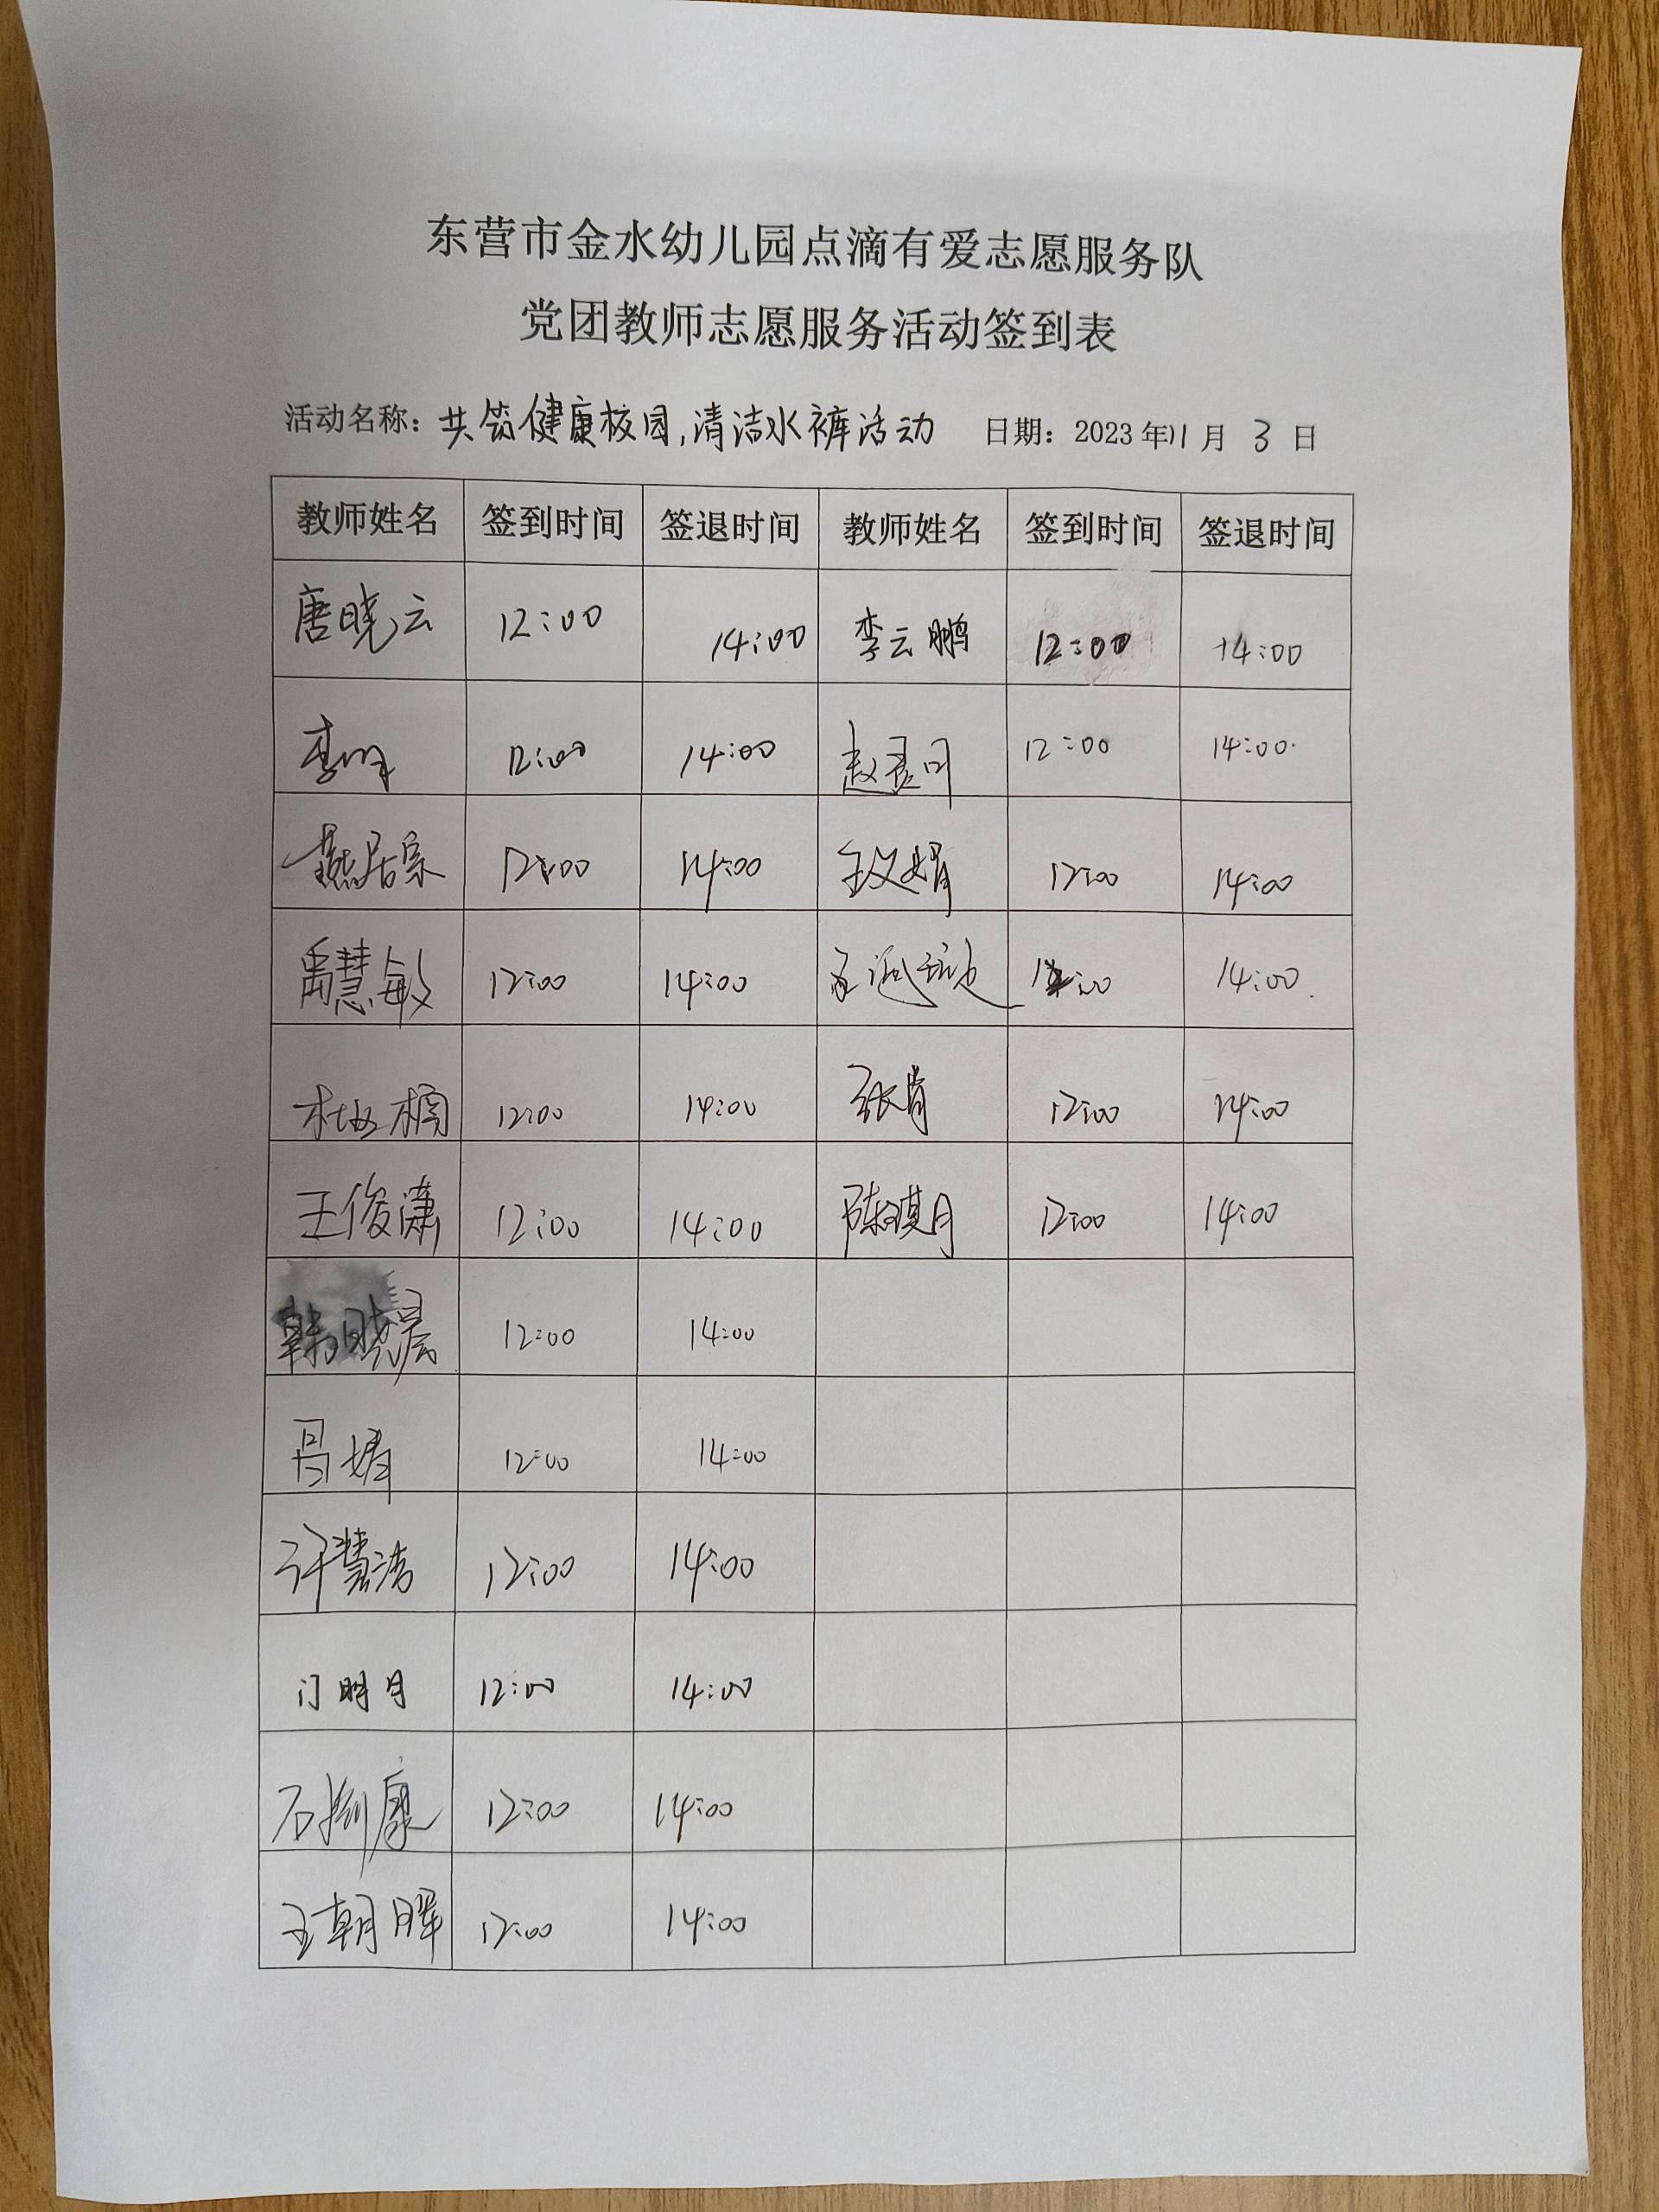 东营市金水幼儿园点滴有爱志愿服务队
党团教师志愿服务活动签到表
活动名称：共筑健康校园，清洁水裤活动 日期：2023年11月3日
教师姓名 签到时间 签退时间 教师姓名 签到时间 签退时间
唐晓云 12:00 14:00 李云鹏 12:00 14:00
12:00 14:00 12:00 14:00
燕居宗 12:00 14:00 王文娟 12:00 14:00
禹慧敏 12:00 14:00 14:00
12:00 14:00 张肖 12:00 14:00
王俊潇 12:00 14:00 陈琪月 12:00 14:00
韩晓晨 12:00 14:00
吕婧 12:00 14:00
许慧洁 12:00 14:00
门明月 12:00 14:00
12:00 14:00
王朝晖 12:00 14:00